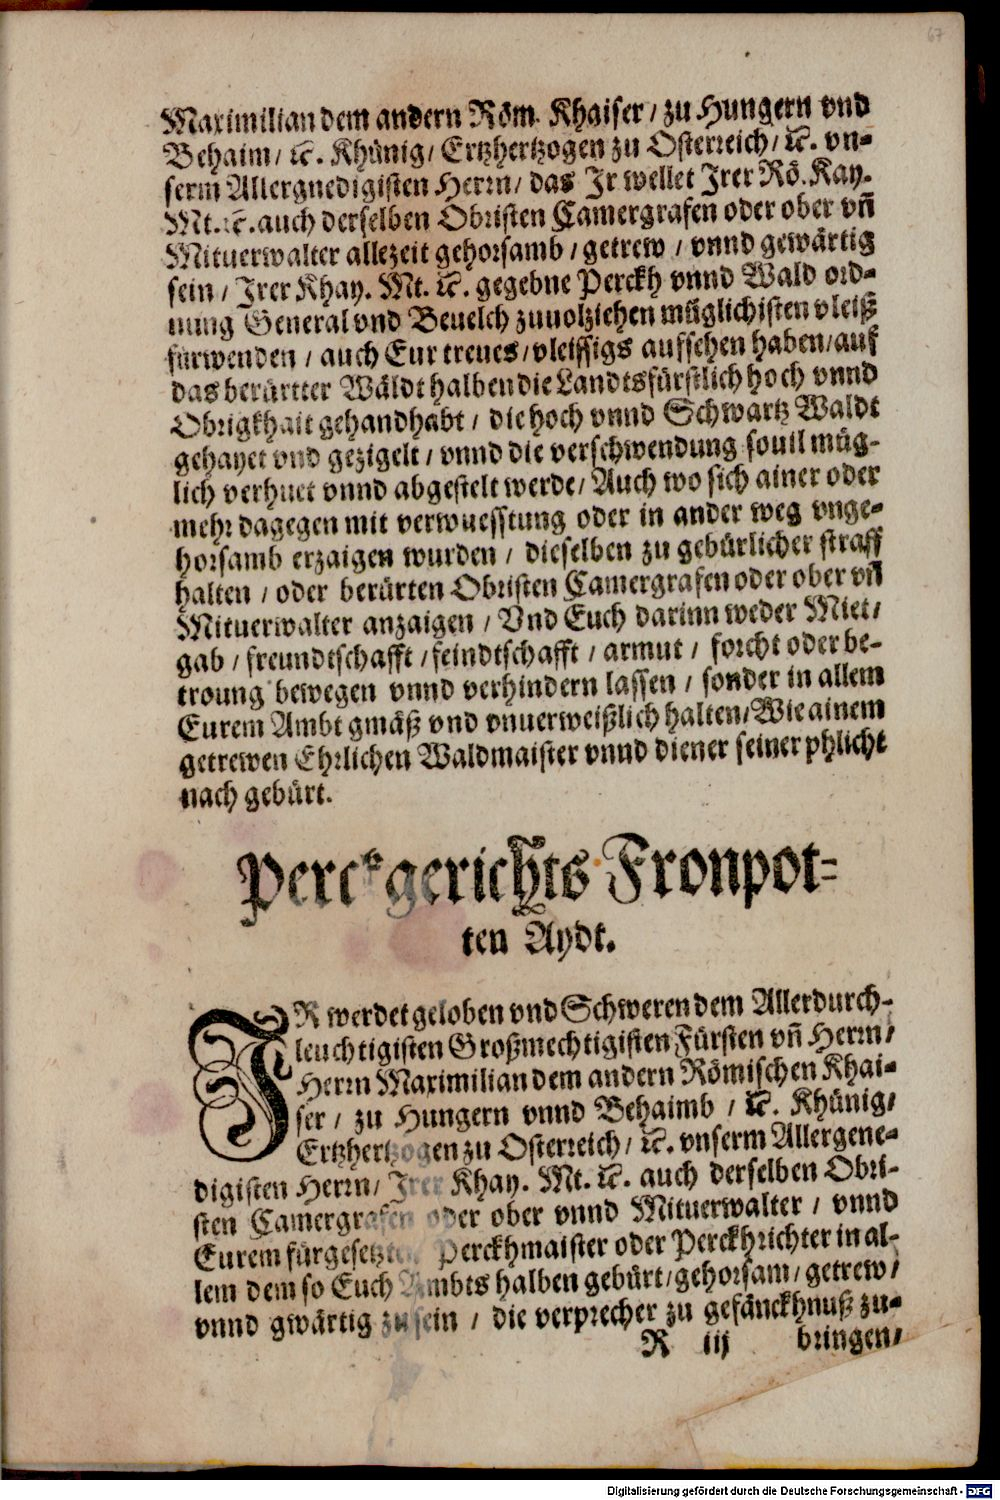 67
Maximilian dem andern Röm. Khaiser / zu Hungern vnd
Behaim / ꝛc. Khünig / Ertzhertzogen zu Osterreich / ꝛc. vn-
serm Allergnedigisten Herrn / das Jr wellet Jrer Rö. Kay.
Mt. ꝛc. auch derselben Obristen Camergrafen oder ober vñ
Mituerwalter allezeit gehorsamb / getrew / vnnd gewärtig
sein / Jrer Khay. Mt. ꝛc. gegebne Perckh vnnd Wald ord-
nung General vnd Beuelch zuuolziehen müglichisten vleiß
fürwenden / auch Eur treues / vleissigs aufsehen haben / auf
das berürtter Wäldt halben die Landtsfürstlich hoch vnnd
Obrigkhait gehandhabt / die hoch vnnd Schwartz Waldt
gehayet vnd gezigelt / vnnd die verschwendung souil müg-
lich verhuet vnnd abgestelt werde / Auch wo sich ainer oder
mehr dagegen mit verwuesstung oder in ander weg vnge-
horsamb erzaigen wurden / dieselben zu gebürlicher straff
halten / oder berürten Obristen Camergrafen oder ober vñ
Mituerwalter anzaigen / Vnd Euch darinn weder Miet /
gab / freundtschafft / feindtschafft / armut / forcht oder be-
troung bewegen vnnd verhindern lassen / sonder in allem
Eurem Ambt gmäß vnd vnuerweißlich halten / Wie ainem
getrewen Ehrlichen Waldmaister vnnd diener seiner phlicht
nach gebürt.
Perckgerichts Fronpot-
ten Aydt.
JR werdet geloben vnd Schweren dem Allerdurch-
leuchtigisten Großmechtigisten Fürsten vñ Herrn /
Herrn Maximilian dem andern Römischen Khai-
ser / zu Hungern vnnd Behaimb / ꝛc. Khünig /
Ertzhertzogen zu Osterreich / ꝛc. vnserm Allergene-
digisten Herrn / Jrer Khay. Mt. ꝛc. auch derselben Obri-
sten Camergrafen oder ober vnnd Mituerwalter / vnnd
Eurem fürgesetzten Perckhmaister oder Perckhrichter in al-
lem dem so Euch Ambts halben gebürt / gehorsam / getrew /
vnnd gwärtig zu sein / die verprecher zu gefänckhnuß zu-
R iij bringen /
Digitalisierung gefördert durch die Deutsche Forschungsgemeinschaft - DFG